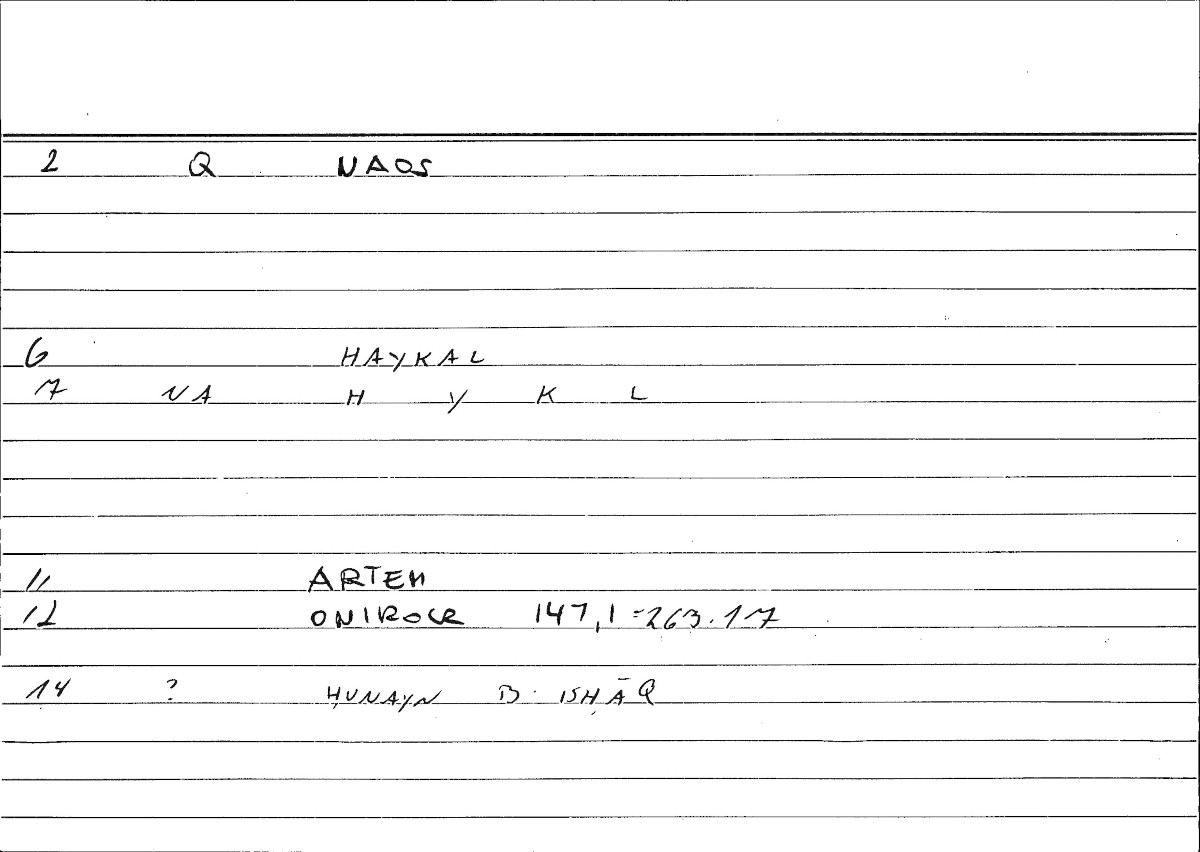 2 Q NAOS
6 HAYKAL
7 NA H Y K L
11 ARTEM
12 ONIROCR 147,1=263.17
14 ? ḤUNAYN B. ISḤĀQ